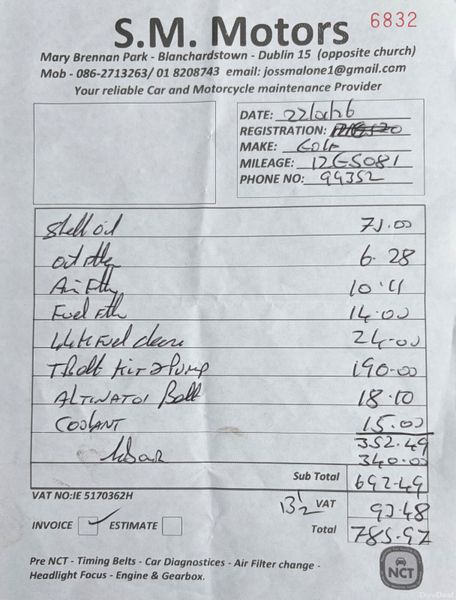 S.M. Motors 6832
Mary Brennan Park - Blanchardstown - Dublin 15 (opposite church)
Mob - 086-2713263/ 01 8208743 email: jossmalone1@gmail.com
Your reliable Car and Motorcycle maintenance Provider
DATE:
REGISTRATION:
MAKE: Golf
MILEAGE: 12G5081
PHONE NO: 99352
Shell oil
oil 6.28
Air 10.11
Fuel 14.00
Fuel 24.00
Kit & Pump 190.00
Belt 18.10
COOLANT 15.00
352.49
340.00
Sub Total 692.49
VAT NO:IE 5170362H
13½ VAT 93.48
INVOICE ESTIMATE Total 785.97
Pre NCT - Timing Belts - Car Diagnostices - Air Filter change -
Headlight Focus - Engine & Gearbox.
NCT